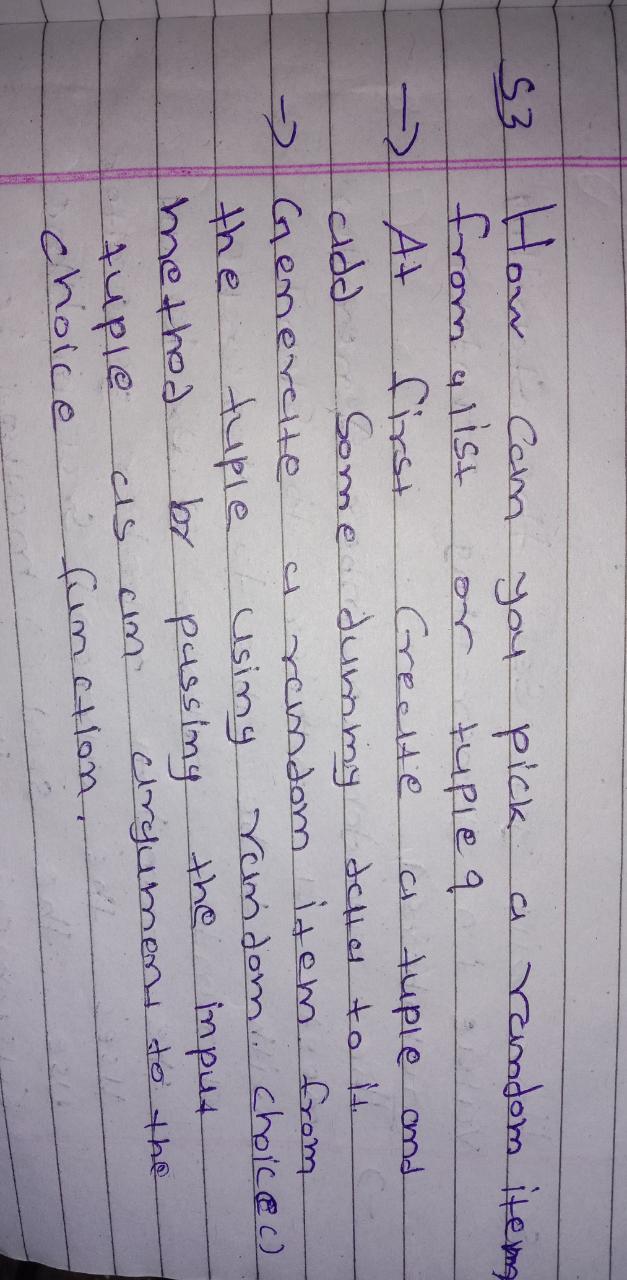 53 How can you pick a random items
from a list or tuple ?
→ At first Create a tuple and
add Some dummy data to it.
→ Generate a random item from
the tuple using random. choice()
method by passing the input
tuple as an argument to the
choice function.